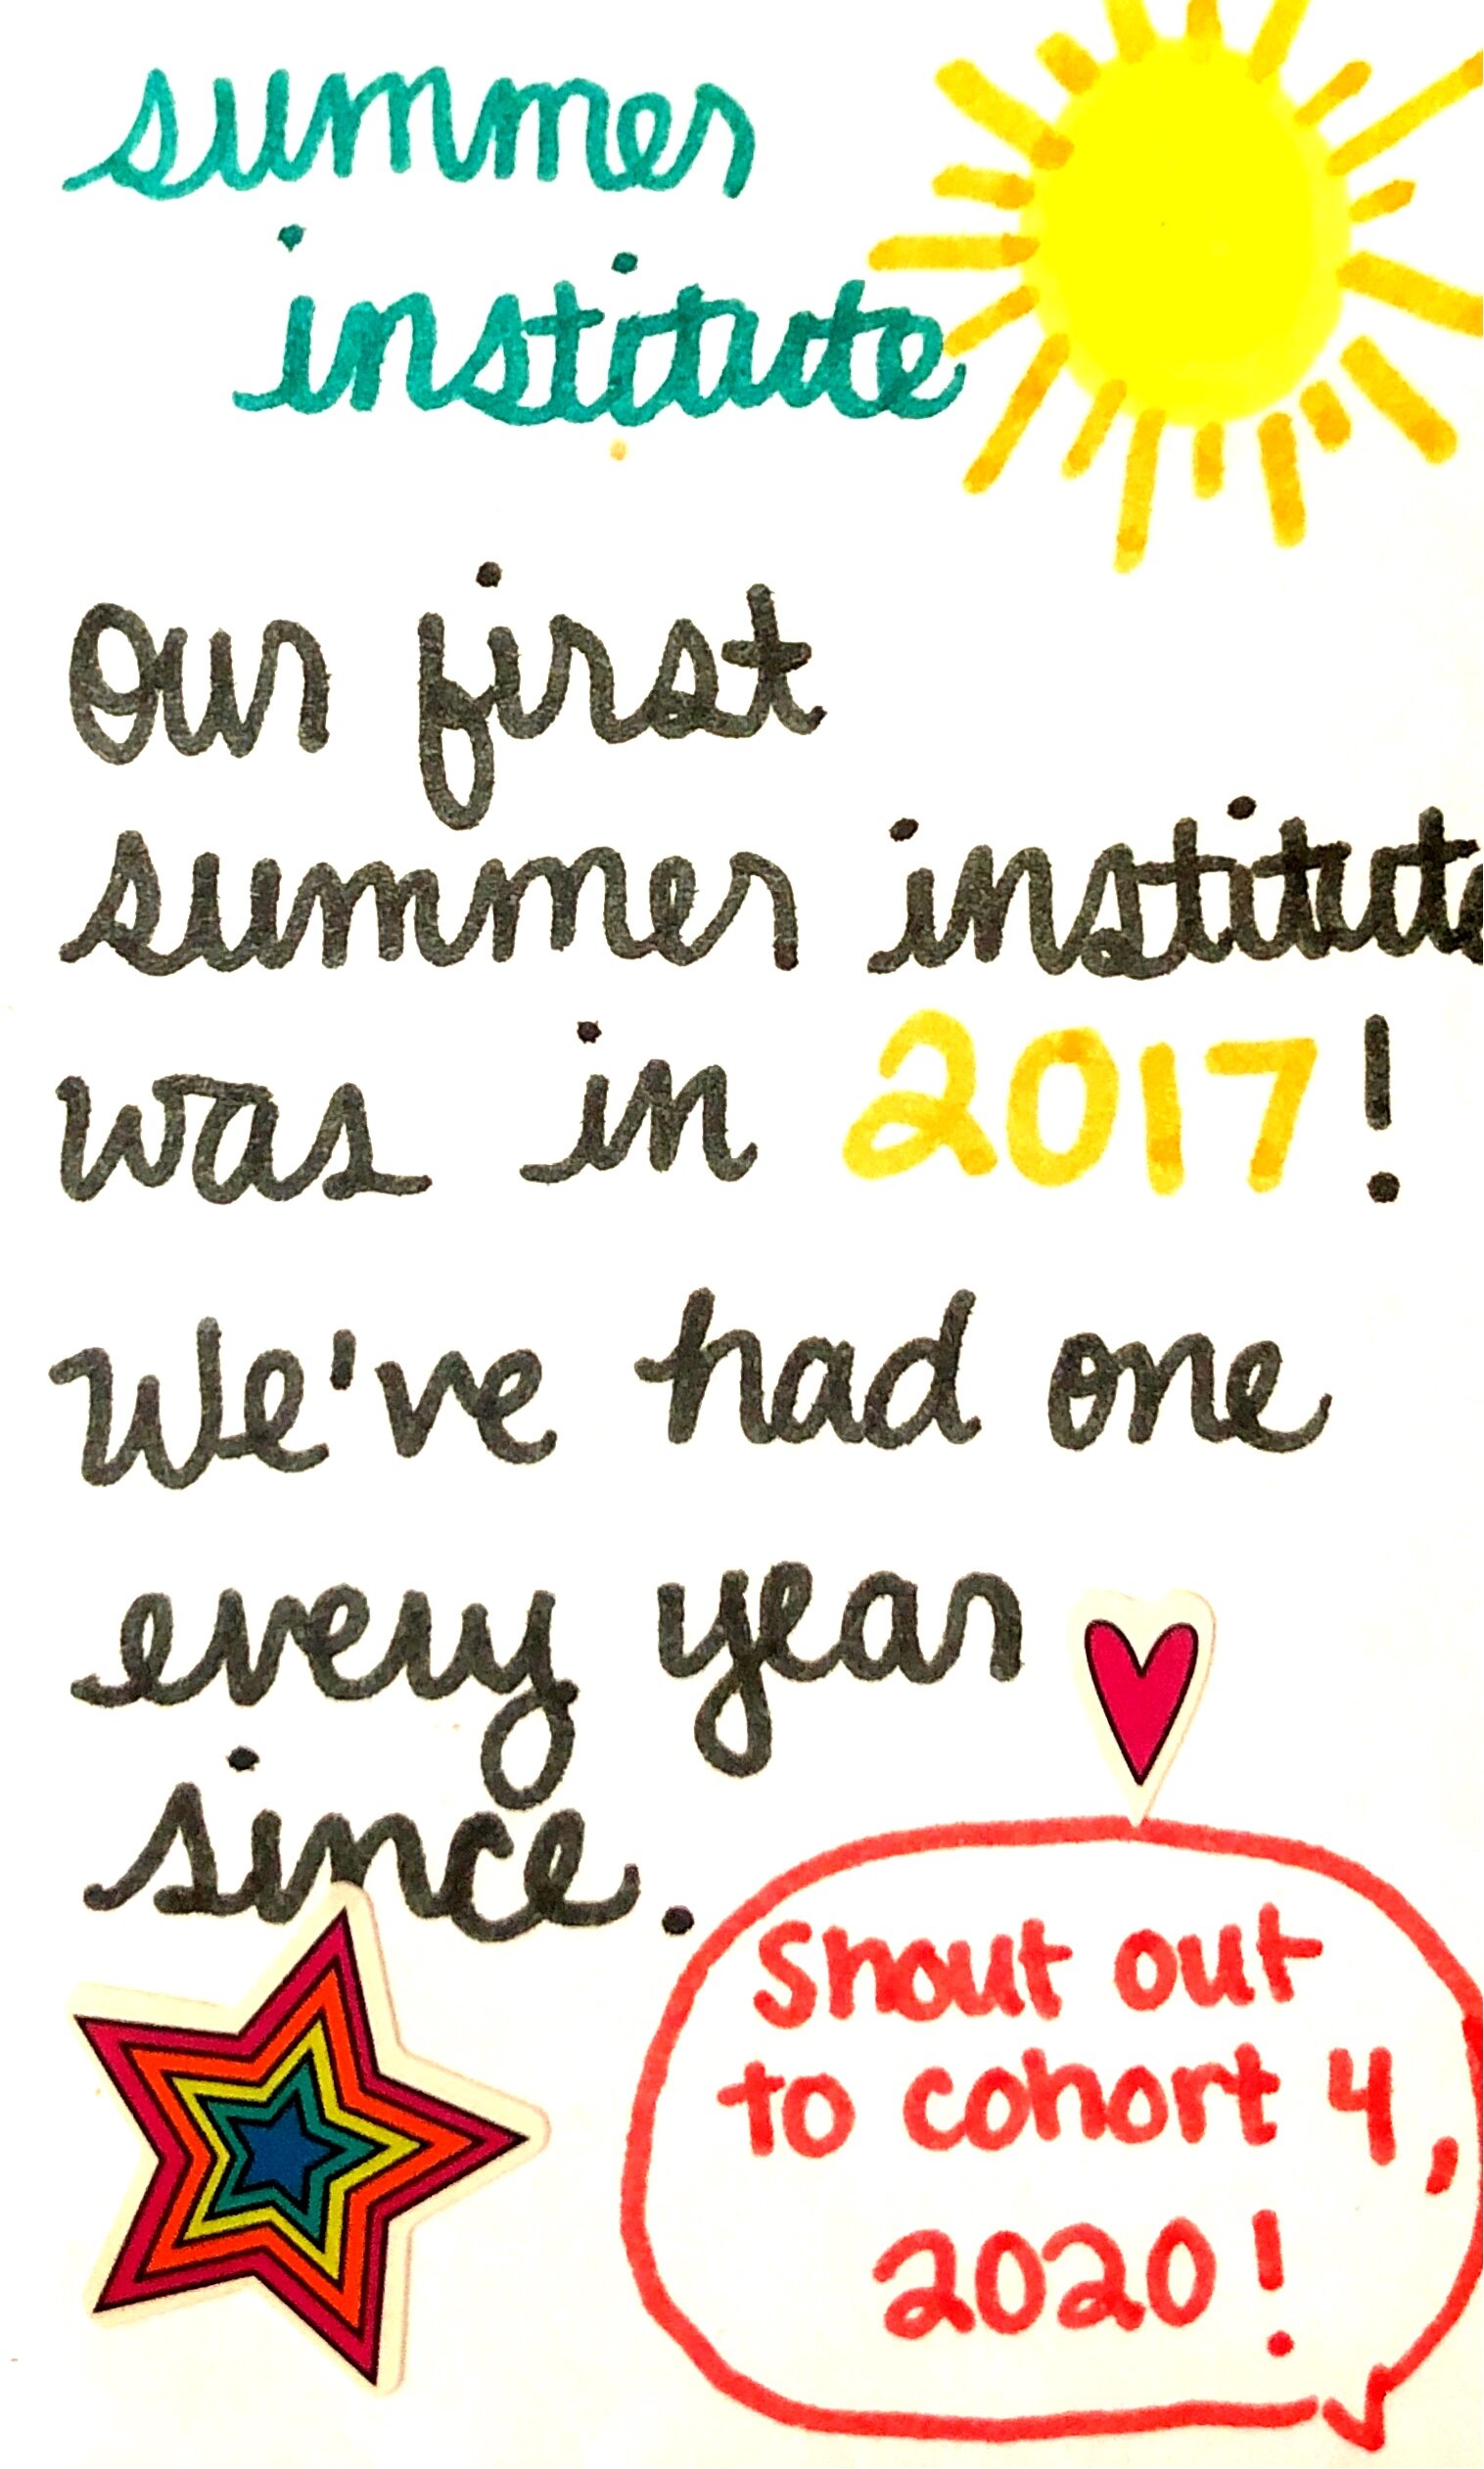 summer
institute
Our first
summer institute
was in 2017!
We've had one
every year
since.
Shout out
to cohort 4,
2020!